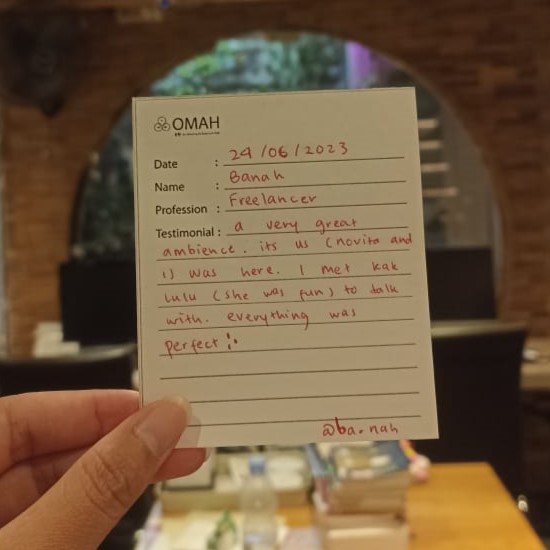 OMAH
Date : 24/06/2023
Name : Banah
Profession : Freelancer
Testimonial : a very great
ambience. its us (novita and
i) was here. I met kak
lulu (she was fun) to talk
with. everything was
perfect
@ba.nah